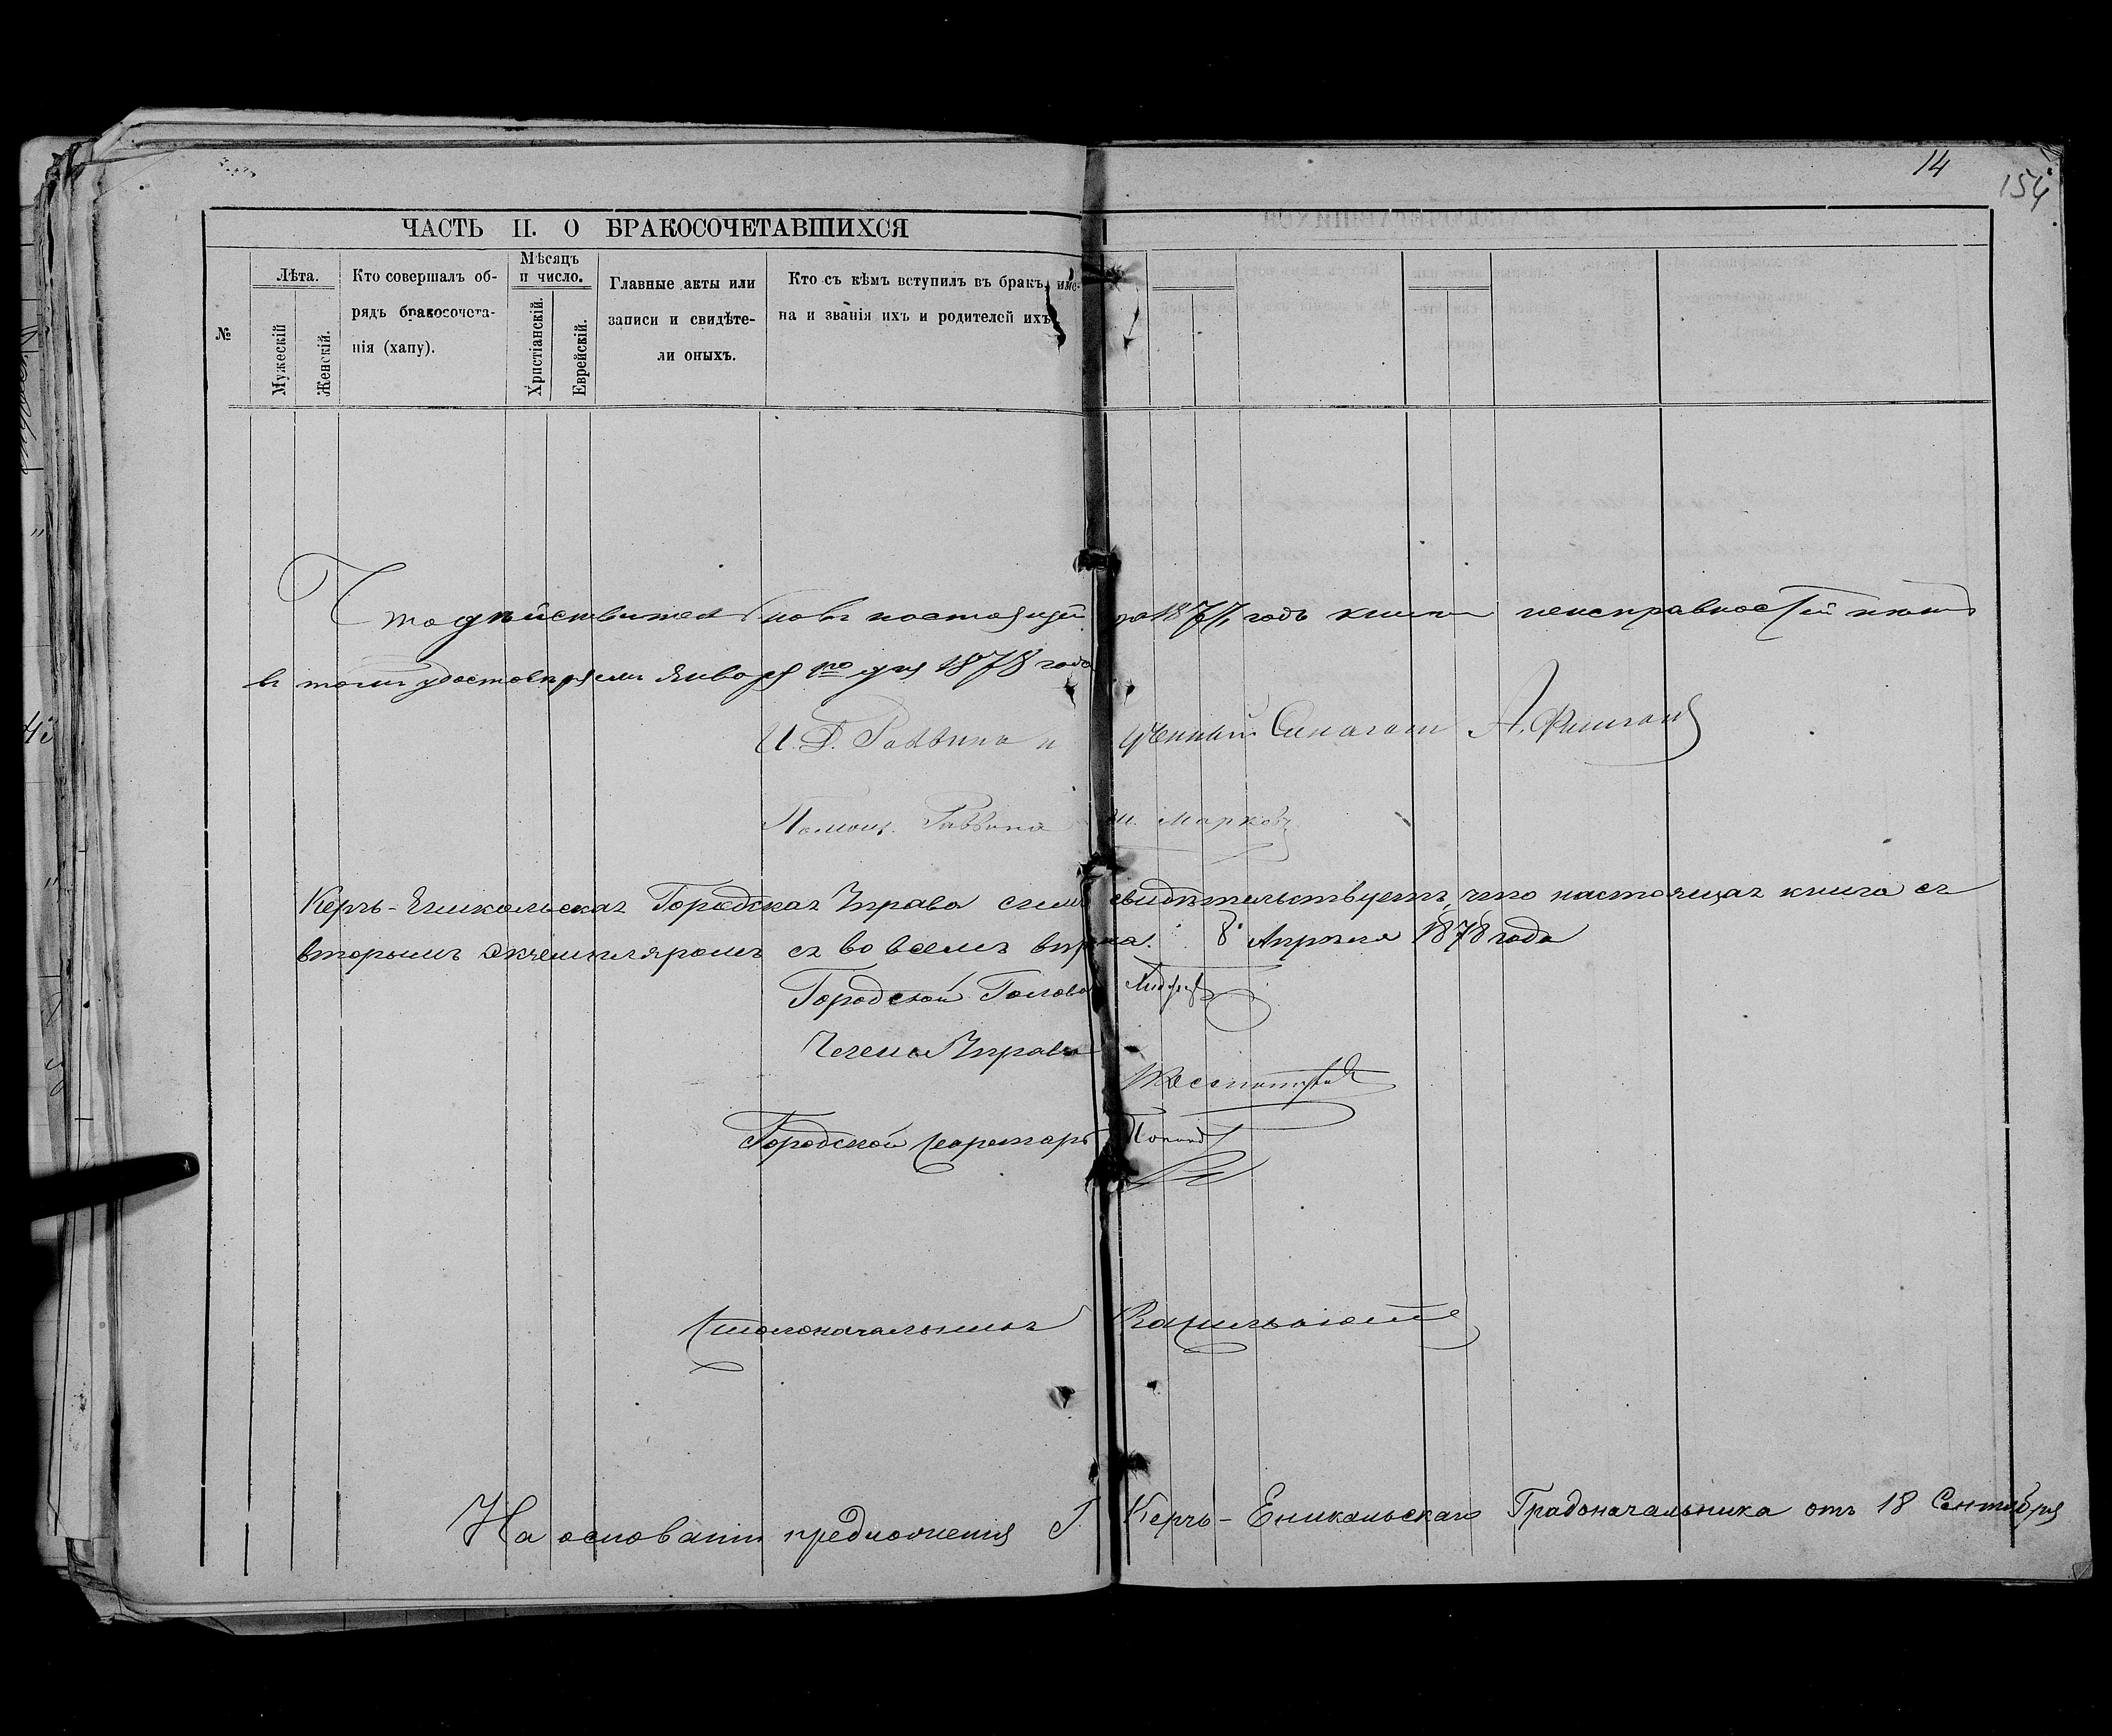 14
154
ЧАСТЬ II. О БРАКОСОЧЕТАВШИХСЯ
№
Лѣта.
Мужескій
Женскій.
Кто совершалъ об-
рядъ бракосочета-
нія (хапу).
Мѣсяцъ
и число.
Христіанскій.
Еврейскій.
Главные акты или
записи и свидѣте-
ли оныхъ.
Кто съ кѣмъ вступилъ въ бракъ, име-
на и званія ихъ и родителей ихъ.
Что дѣйствительно въ настоящей за 1877 годъ книги неисправностей нѣтъ
въ томъ удостовѣряемъ Января 1го дня 1878 года
И. Д. Раввина и ученный Синагоги А.
Помощ. Раввина Ш. Марковъ
Керчь-Еникольская Городская Управа симъ свидѣтельствуетъ, что настоящая книга съ
вторымъ экземпляромъ съ во всемъ вѣрна. "8" Апрѣля 1878 года
Городской Голова
Члены Управы
Городской Секретарь Попов
Столоначальникъ
На основаніи предложенія Г. Керчь-Еникольскаго Градоначальника отъ 18 Сентября